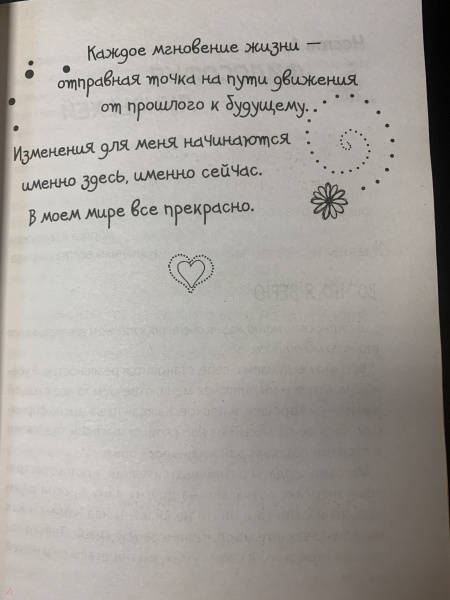 Каждое мгновение жизни —
отправная точка на пути движения
от прошлого к будущему...
Изменения для меня начинаются
именно здесь, именно сейчас.
В моем мире все прекрасно.